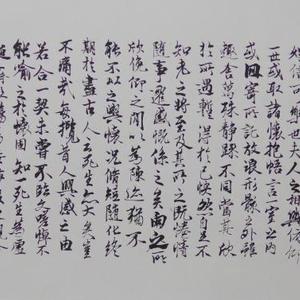 娛信可樂也夫人之相與俯仰
一世或取諸懷抱悟言一室之內
或因寄所託放浪形骸之外雖
趣舍萬殊靜躁不同當其欣
於所遇暫得於己快然自足不
知老之將至及其所之既惓情
隨事遷感慨係之矣向之所
欣俛仰之間以為陳迹猶不
能不以之興懷況脩短隨化終
期於盡古人云死生亦大矣豈
不痛哉每攬昔人興感之由
若合一契未嘗不臨文嗟悼不
能喻之於懷固知死生為虛